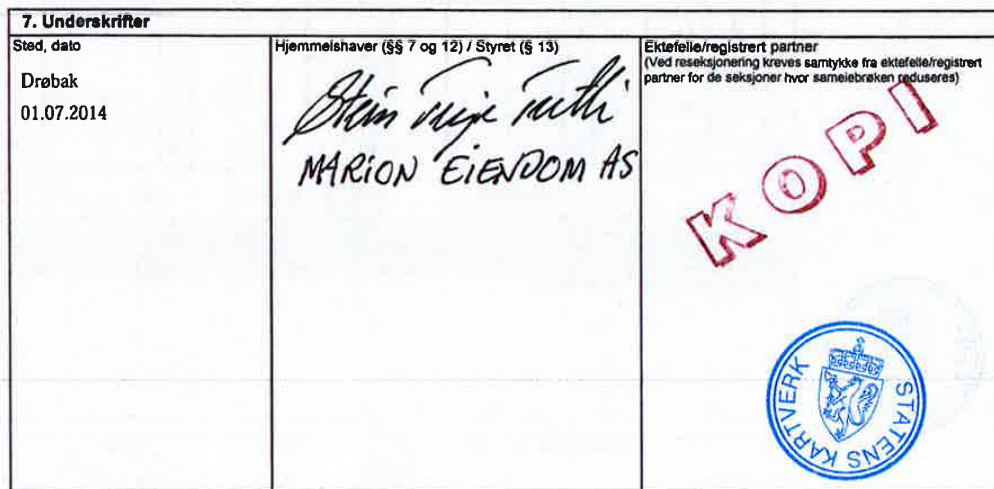 7. Underskrifter
Sted, dato
Drøbak
01.07.2014
Hjemmelshaver (§§ 7 og 12) / Styret (§ 13)
Stein
MARION EIENDOM AS
Ektefelle/registrert partner
(Ved reseksjonering kreves samtykke fra ektefelle/registrert
partner for de seksjoner hvor sameiebrøken reduseres)
KOPI
STATENS KARTVERK